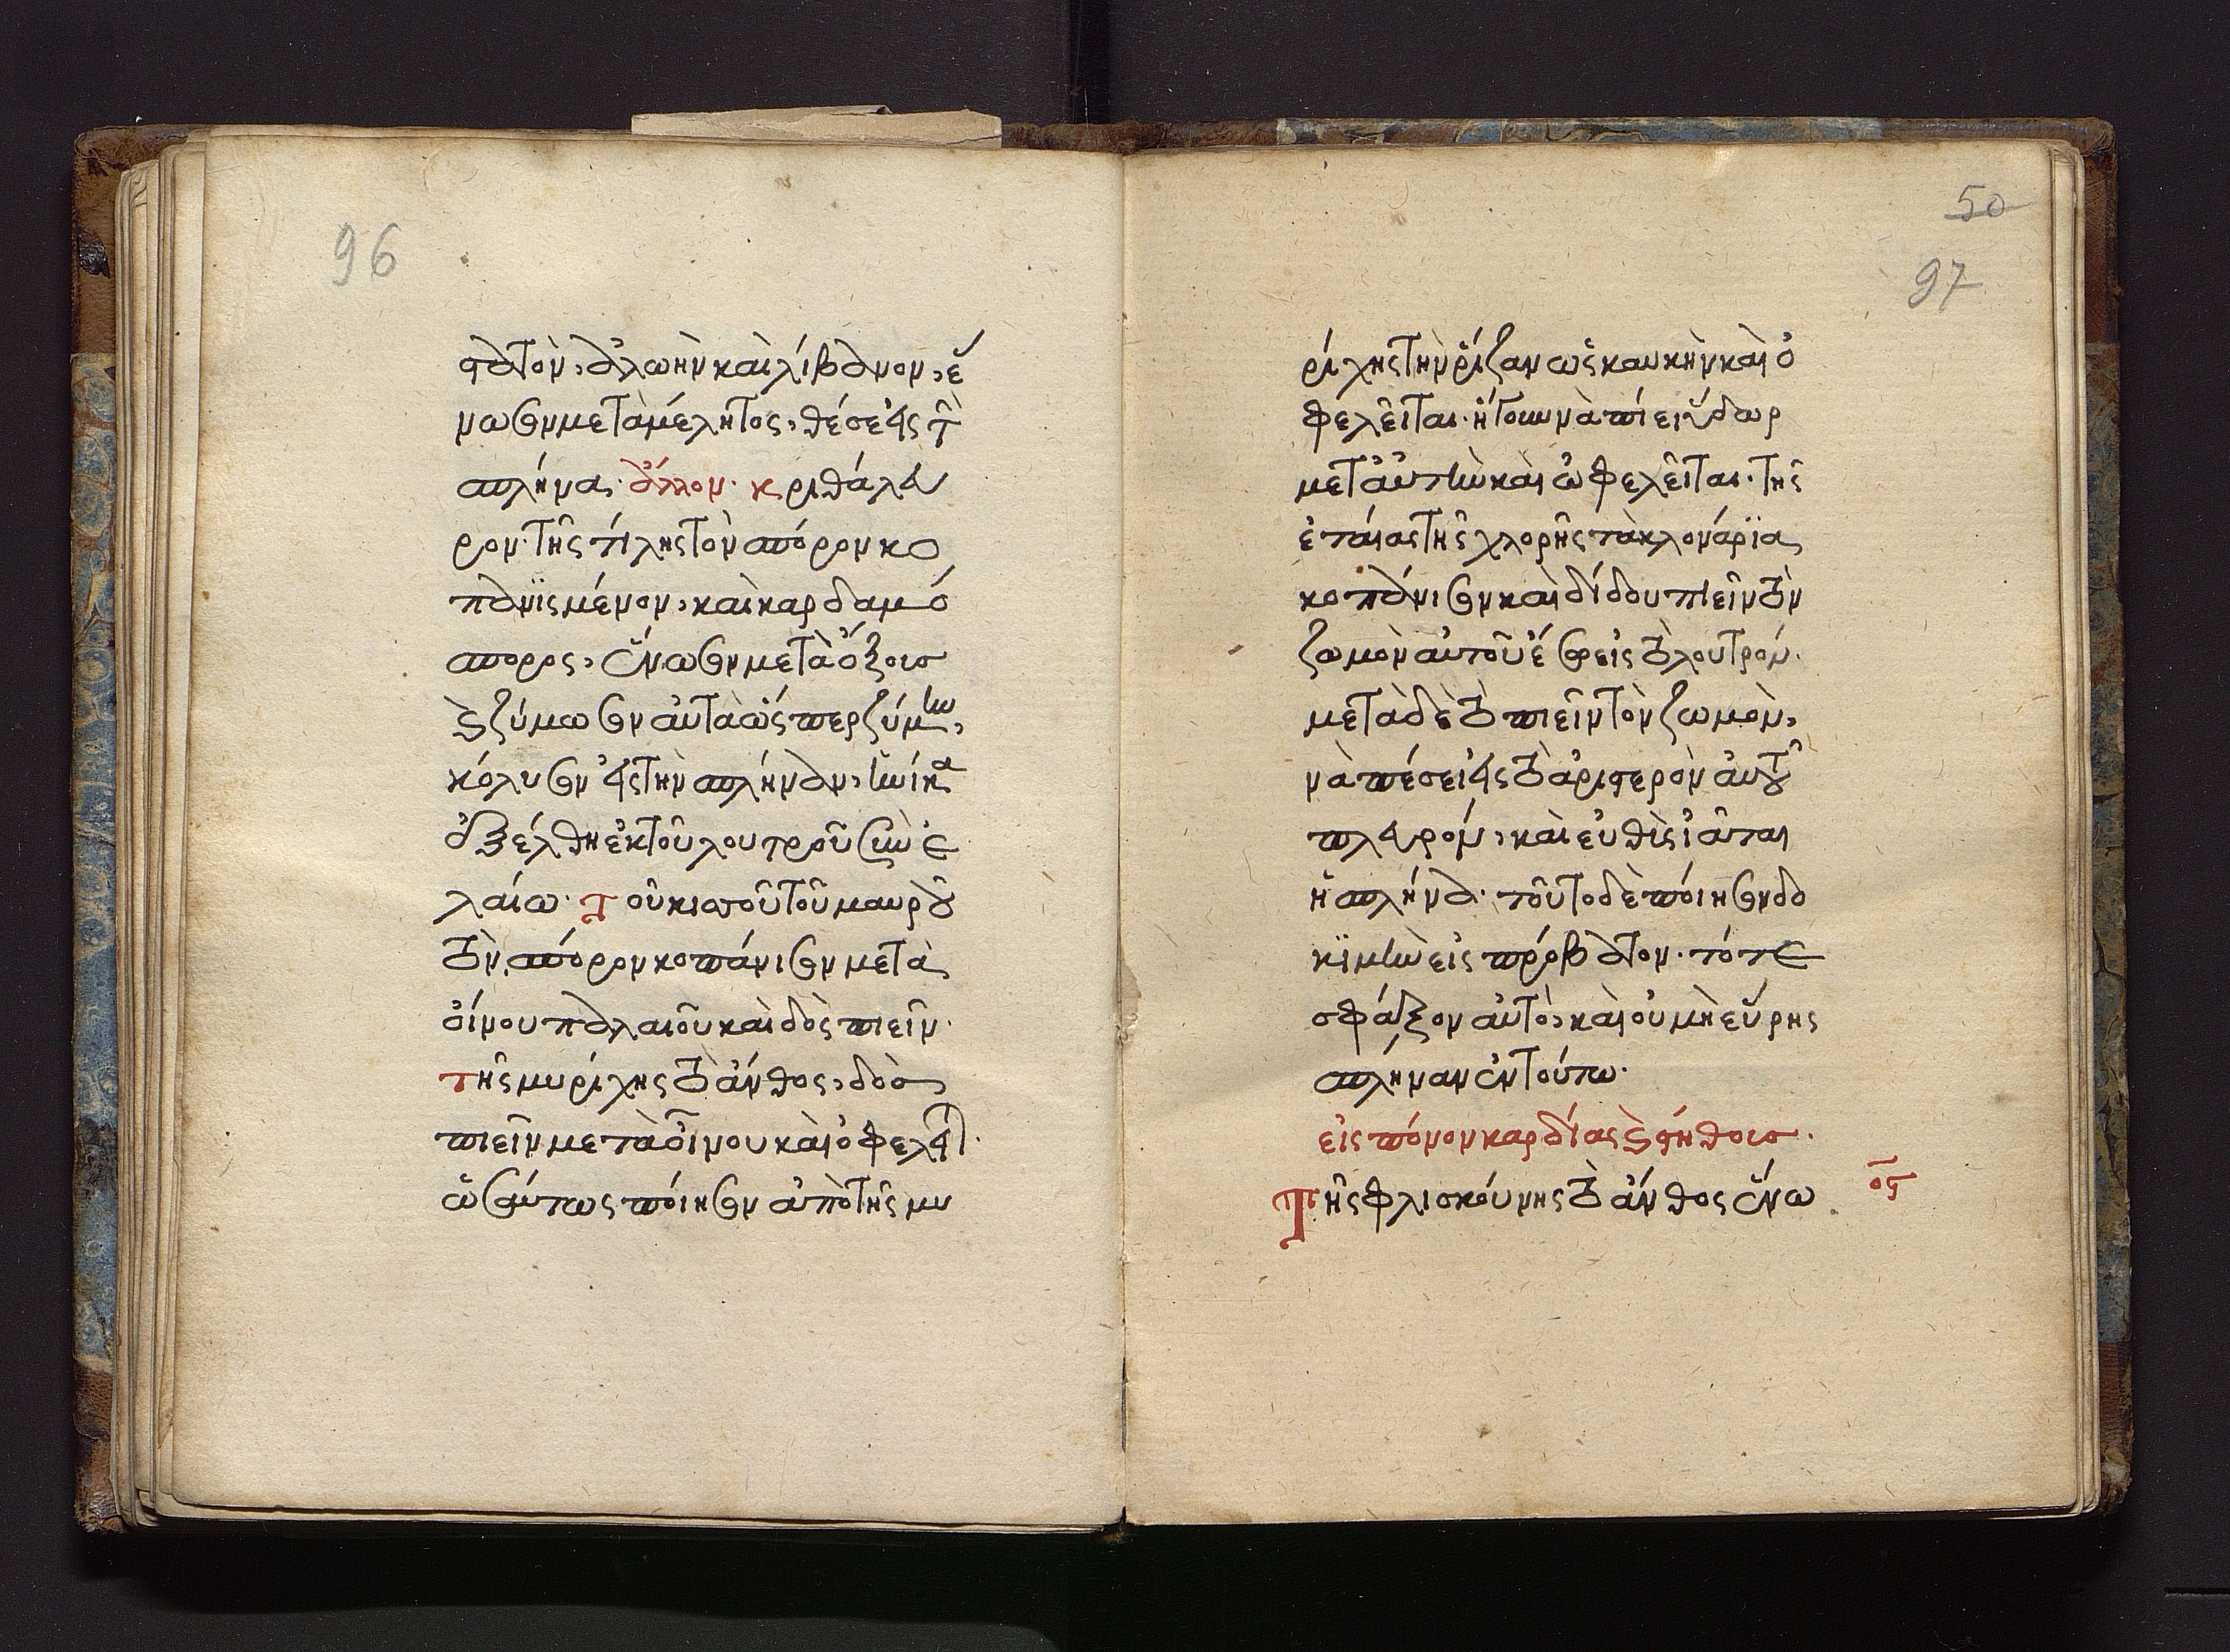 96
στατὸν, ἀλωὴν καὶ λίβανον, ἕ
νωσον μετὰ μέλητος, θέσ εἰς τ
σπλήνα. ἄλλον. κριθάλευ
ρον. τῆς τίλης τὸν σπόρον κο
πανϊσμένον, καὶ καρδαμό
σπορος, ἕνωσον μετὰ ὄξους
καὶ ζύμωσον αὐτὰ ὥσπερ ζύμην,
κόλυσον εἰς τὴν σπλήναν, ἡνίκα
ὀξέλθη ἐκ τοῦ λουτροῦ σὺν ἐ
λαίω. Τοῦ κισσοῦ τοῦ μαύρου
τὸν σπόρον κοπάνισον μετὰ
οἴνου παλαιοῦ καὶ δὸς πιεῖν.
τῆς μυρίχης τὸ ἄνθος, δὸσ
πιεῖν μετὰ οἴνου καὶ ὀφελεῖτ.
ὡσαύτως ποίησον ἀπὸ τῆς μυ
50
97
ρίχης τὴν ῥίζαν ὡς καυκὴν καὶ ὀ
φελεῖται. ἤτουν νὰ πίει ὕδωρ
μετ' αὐτὴν καὶ ὠφελεῖται. τῆς
ἐτέας τῆς χλορῆς τὰ κλονάρϊα
κοπάνισον καὶ δίδου πιεῖν τὸν
ζωμὸν αὐτοῦ ἔσω εἰς τὸ λουτρόν.
μετὰ δὲ τὸ πιεῖν τὸν ζωμὸν,
νὰ πέσει εἰς τὸ ἀριστερὸν αὐτοῦ
πλευρόν, καὶ εὐθὶς ἰᾶται
ἡ σπλήνα. τοῦτο δὲ ποίησον δο
κϊμὴν εἰς πρόβατον. τότε
σφάξον αὐτὸ, καὶ οὐ μὴ εὕρης
σπλήναν ἐν τούτω.
εἰς πόνον καρδίας καὶ στήθους.
Τῆς φλισκούνης τὸ ἄνθος ἕνω
οϛ